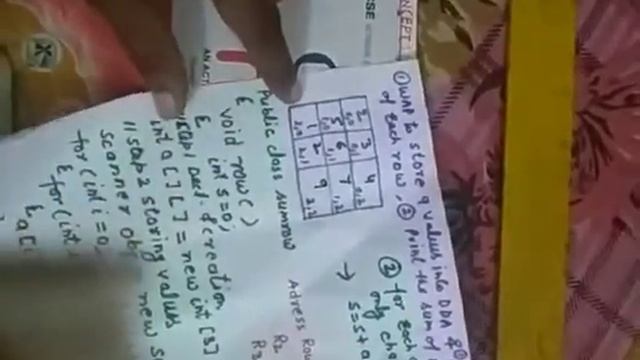 ① WAP to store 9 values into DDA &
of each row, ② Print the sum of
2 3 4
0,0 0,1 0,2
5 6 7
1,0 1,1 1,2
1 2 9
2,0 2,1 2,2
② for each
only cha
→ s=s+a
Public class sumrow
{
void row()
{ int s=0;
Adress Row
R2
R3
int a[][] = new int [3]
// step 2 storing values
scanner ob new s
for (int i=0,
{ for (int
{ a[
CONCEPT
AN ACTI